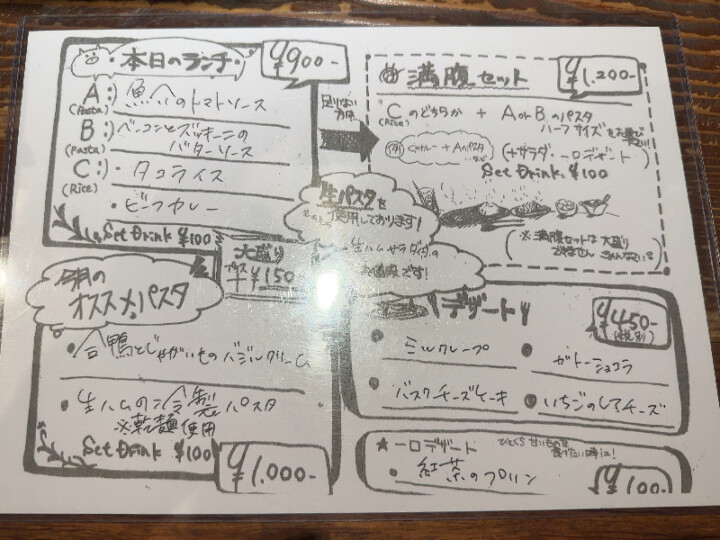 本日のランチ
¥900-
A:)
(Pasta)
魚介のトマトソース
B:)
(Pasta)
ベーコンとズッキーニの
バターソース
C:)
(Rice)
・タコライス
・ビーフカレー
Set Drink ¥100
大盛り
プラス
+¥150
足りない
方は
満腹セット
¥1,200-
C のどちらか + A or B のパスタ
(Rice)
ハーフサイズ
(例)
カレー + Aのパスタ
(+サラダ・一口デザート)
Set Drink ¥100
(※満腹セットは大盛り
できません ごめんなさい)
生パスタを
使用しております!
今月の
オススメパスタ
・合鴨とじゃがいものバジルクリーム
・生ハムの冷製パスタ
※乾麺使用
Set Drink ¥100
¥1,000-
デザート
¥450-
(税別)
・ミルクレープ
・ガトーショコラ
・バスクチーズケーキ
・いちごのレアチーズ
★一口デザート
ひとくち 甘いものを
食べたい時に!
・紅茶のプリン
¥100-